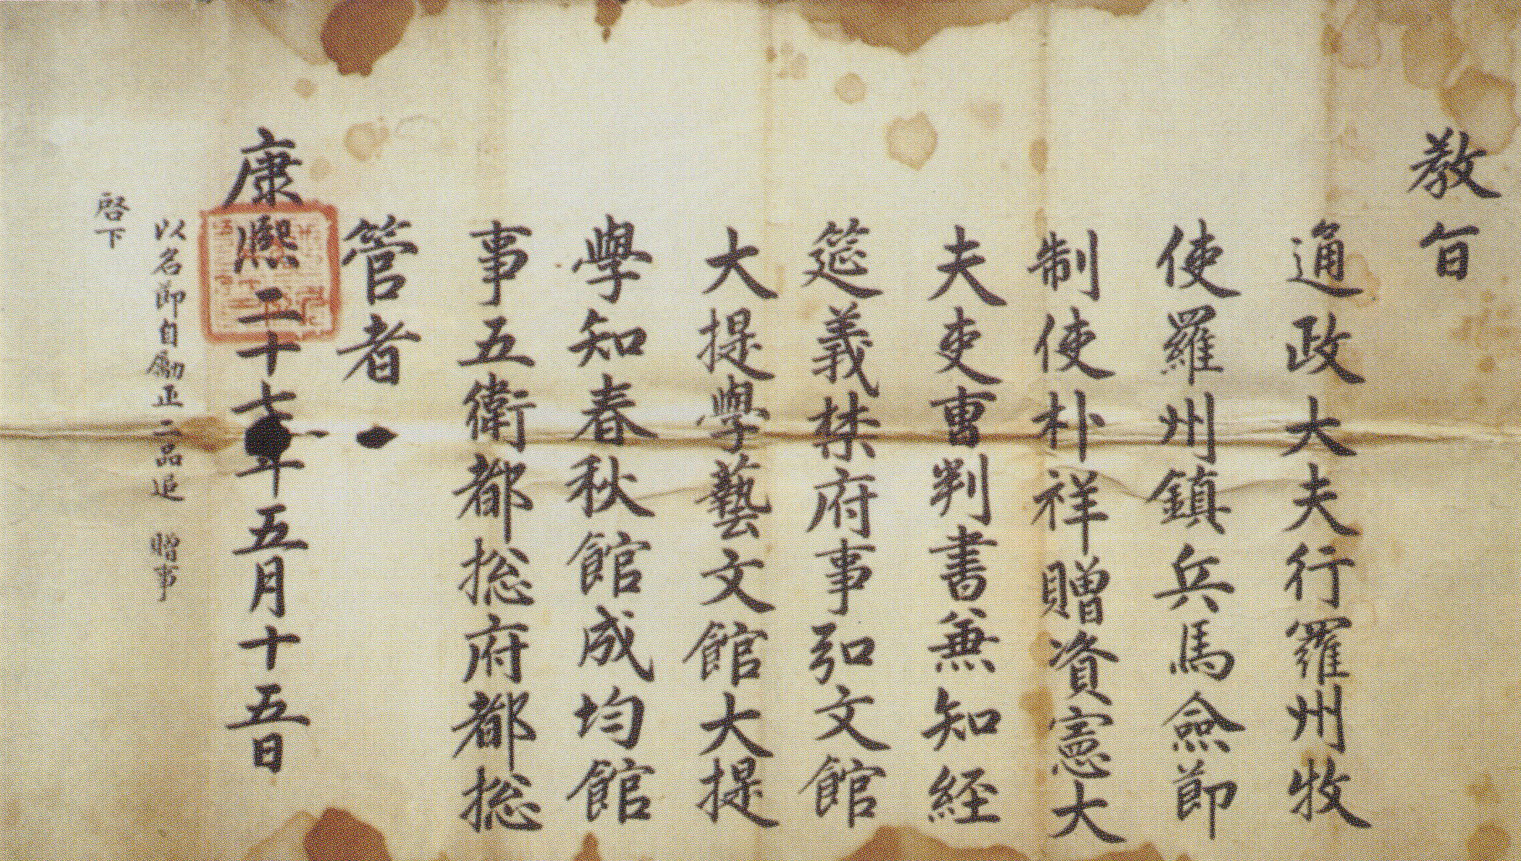 教旨
通政大夫行羅州牧
使羅州鎮兵馬僉節
制使朴祥贈資憲大
夫吏曺判書兼知経
筵義禁府事弘文館
大提學藝文館大提
學知春秋館成均館
事五衛都摠府都摠
管者
康熙二十七年五月十五日
以名節自勵正二品追 贈事
啓下